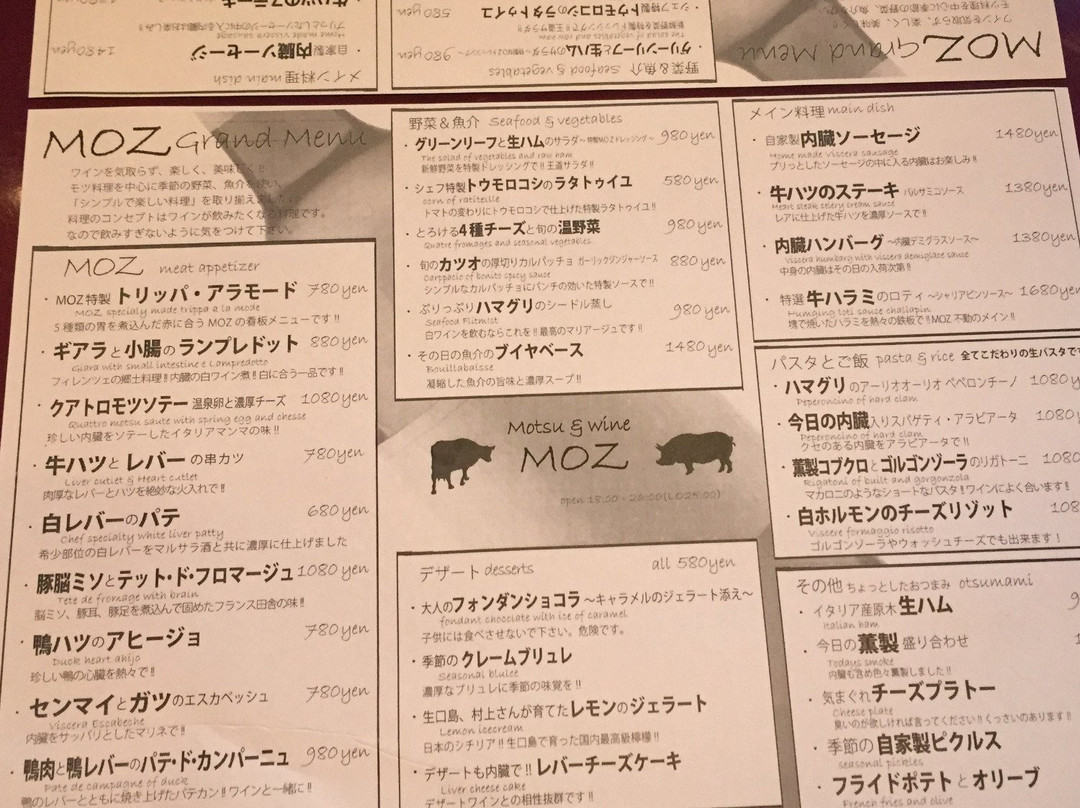 MOZ Grand Menu
ワインを気取らず、楽しく、美味しく!!
モツ料理を中心に季節の野菜、魚介を使い、
「シンプルで楽しい料理」を取り揃えました。
料理のコンセプトはワインが飲みたくなる料理です。
なので飲みすぎないように気をつけて下さい。
MOZ meat appetizer
・MOZ特製トリッパ・アラモード 780yen
MOZ specialy made trippa a la mode
5種類の胃を煮込んだ赤に合うMOZの看板メニューです!!
・ギアラと小腸のランプレドット 880yen
Giara with small intestine e Lampredotto
フィレンツェの郷土料理!!内臓の白ワイン煮!!白に合う一品です!!
・クアトロモツソテー 温泉卵と濃厚チーズ 1080yen
Quattro motsu saute with spring egg and chesse
珍しい内臓をソテーしたイタリアマンマの味!!
・牛ハツとレバーの串カツ 780yen
Liver cutlet & Heart cutlet
肉厚なレバーとハツを絶妙な火入れで!!
・白レバーのパテ 680yen
Chef specialty white liver patty
希少部位の白レバーをマルサラ酒と共に濃厚に仕上げました
・豚脳ミソとテット・ド・フロマージュ 1080yen
Tete de fromage with brain
脳ミソ、豚耳、豚足を煮込んで固めたフランス田舎の味!!
・鴨ハツのアヒージョ 780yen
Duck heart ahijo
珍しい鴨の心臓を熱々で!!
・センマイとガツのエスカベッシュ 780yen
Viscera Escabeche
内臓をサッパリとしたマリネで!!
・鴨肉と鴨レバーのパテ・ド・カンパーニュ 980yen
Pate de campagne of duck
鴨のレバーとともに焼き上げたパテカン!!ワインと一緒に!!
野菜&魚介 Seafood & vegetables
・グリーンリーフと生ハムのサラダ~特製MOZドレッシング~ 980yen
The salad of vegetables and raw ham
新鮮野菜を特製ドレッシングで!!王道サラダ!!
・シェフ特製トウモロコシのラタトゥイユ 580yen
corn of ratiteille
トマトの変わりにトウモロコシで仕上げた特製ラタトゥイユ!!
・とろける4種チーズと旬の温野菜 980yen
Quatre fromages and seasonal vegetables
・旬のカツオの厚切りカルパッチョ ガーリックジンジャーソース 880yen
Carppacio of bonito spicy sauce
シンプルなカルパッチョにパンチの効いた特製ソースで!!
・ぷりっぷりハマグリのシードル蒸し 980yen
Seafood Flitmist
白ワインを飲むならこれを!!最高のマリアージュです!!
・その日の魚介のブイヤベース 1480yen
Bouillabaisse
凝縮した魚介の旨味と濃厚スープ!!
Motsu & wine
MOZ
open 18:00 - 26:00(L.O25:00)
デザート desserts all 580yen
・大人のフォンダンショコラ~キャラメルのジェラート添え~
fondant chocolate with ice of caramel
子供には食べさせないで下さい。危険です。
・季節のクレームブリュレ
Seasonal blulee
濃厚なブリュレに季節の味覚を!!
・生口島、村上さんが育てたレモンのジェラート
Lemon icecream
日本のシチリア!!生口島で育った国内最高級檸檬!!
・デザートも内臓で!!レバーチーズケーキ
Liver cheese cake
デザートワインとの相性抜群です!!
メイン料理 main dish
・自家製内臓ソーセージ 1480yen
Home made viscera sausage
プリっとしたソーセージの中に入る内臓はお楽しみ!!
・牛ハツのステーキ バルサミコソース 1380yen
Heart steak celery cream sauce
レアに仕上げた牛ハツを濃厚ソースで!!
・内臓ハンバーグ ~内臓デミグラスソース~ 1380yen
Viscera humbarg with viscera demiglace sause
中身の内臓はその日の入荷次第!!
・特選 牛ハラミのロティ ~シャリアピンソース~ 1680yen
Humaging roti sauce challapin
塊で焼いたハラミを熱々の鉄板で!!MOZ不動のメイン!!
パスタとご飯 pasta & rice 全てこだわりの生パスタです
・ハマグリのアーリオオーリオ ペペロンチーノ 1080y
Peperoncino of hard clam
・今日の内臓入りスパゲティ・アラビアータ 1080
Peperoncino of hard clam
クセのある内臓をアラビアータで!!
・薫製コブクロとゴルゴンゾーラのリガトーニ 1080
Rigatoni of built and gorgonzola
マカロニのようなショートなパスタ!!ワインによく合います!!
・白ホルモンのチーズリゾット 108
Viscere formaggio risotto
ゴルゴンゾーラやウォッシュチーズでも出来ます!
その他 ちょっとしたおつまみ otsumami
・イタリア産原木生ハム 9
Italian ham
・今日の薫製盛り合わせ
Todays smoke
内臓も含め色々薫製しました!!
・気まぐれチーズプラトー
Cheese plate
臭いのが欲しければ言ってください!!くっさいのあります!!
・季節の自家製ピクルス
seasonal pickles
・フライドポテトとオリーブ
French fries and olive
MOZ Grand Menu
野菜&魚介 Seafood & vegetables
・グリーンリーフと生ハムのサラダ~特製MOZドレッシング~ 980yen
The salad of vegetables and raw ham
新鮮野菜を特製ドレッシングで!!王道サラダ!!
・シェフ特製トウモロコシのラタトゥイユ 580yen
メイン料理 main dish
・自家製内臓ソーセージ 1480yen
Home made viscera sausage
プリっとしたソーセージの中に入る内臓はお楽しみ!!
・牛ハツのステーキ